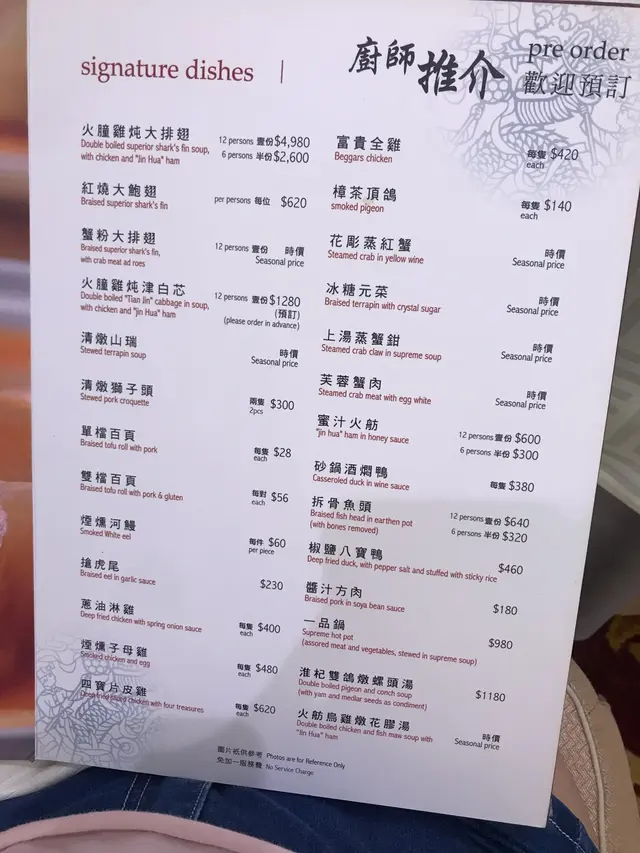 signature dishes |
廚師推介
pre order
歡迎預訂
火朣雞炖大排翅
Double boiled superior shark's fin soup,
with chicken and "Jin Hua" ham
12 persons 壹份 $4,980
6 persons 半份 $2,600
紅燒大鮑翅
Braised superior shark's fin
per persons 每位 $620
蟹粉大排翅
Braised superior shark's fin,
with crab meat ad roes
12 persons 壹份 時價
Seasonal price
火朣雞炖津白芯
Double boiled "Tian Jin" cabbage in soup,
with chicken and "Jin Hua" ham
12 persons 壹份 $1280
(預訂)
(please order in advance)
清燉山瑞
Stewed terrapin soup
時價
Seasonal price
清燉獅子頭
Stewed pork croquette
兩隻
2pcs
$300
單檔百頁
Braised tofu roll with pork
每隻
each
$28
雙檔百頁
Braised tofu roll with pork & gluten
每對
each
$56
煙燻河鰻
Smoked White eel
每件
per piece
$60
搶虎尾
Braised eel in garlic sauce
$230
蔥油淋雞
Deep fried chicken with spring onion sauce
每隻
each
$400
煙燻子母雞
Smoked chicken and egg
每隻
each
$480
四寶片皮雞
Deep fried sliced chicken with four treasures
每隻
each
$620
富貴全雞
Beggars chicken
每隻
each
$420
樟茶頂鴿
smoked pigeon
每隻
each
$140
花彫蒸紅蟹
Steamed crab in yellow wine
時價
Seasonal price
冰糖元菜
Braised terrapin with crystal sugar
時價
Seasonal price
上湯蒸蟹鉗
Steamed crab claw in supreme soup
時價
Seasonal price
芙蓉蟹肉
Steamed crab meat with egg white
時價
Seasonal price
蜜汁火舫
"jin hua" ham in honey sauce
12 persons 壹份 $600
6 persons 半份 $300
砂鍋酒燜鴨
Casseroled duck in wine sauce
每隻 $380
拆骨魚頭
Braised fish head in earthen pot
(with bones removed)
12 persons 壹份 $640
6 persons 半份 $320
椒鹽八寶鴨
Deep fried duck, with pepper salt and stuffed with sticky rice
$460
醬汁方肉
Braised pork in soya bean sauce
$180
一品鍋
Supreme hot pot
(assored meat and vegetables, stewed in supreme soup)
$980
淮杞雙鴿燉螺頭湯
Double boiled pigeon and conch soup
(with yam and medlar seeds as condiment)
$1180
火舫烏雞燉花膠湯
Double boiled chicken and fish maw soup with
"Jin Hua" ham
時價
Seasonal price
圖片祗供參考 Photos are for Reference Only
免加一服務費 No Service Charge